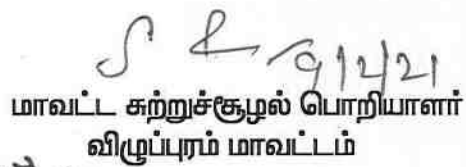 9/2/21
மாவட்ட சுற்றுச்சூழல் பொறியாளர்
விழுப்புரம் மாவட்டம்